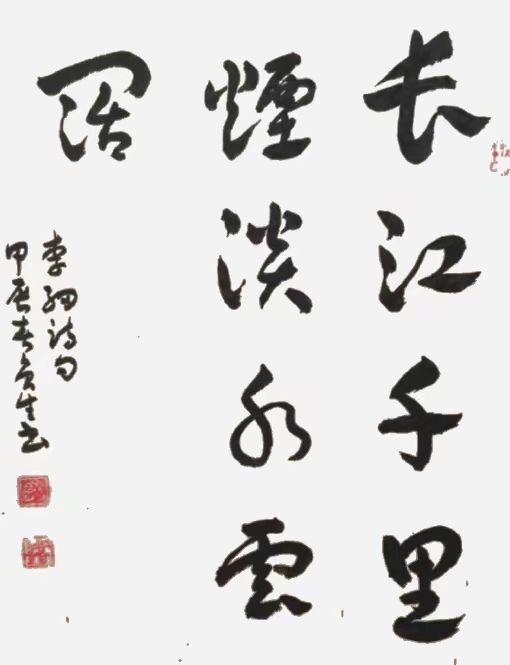 长江千里
煙淡水雲
阔
李纲诗句
甲辰春
生书